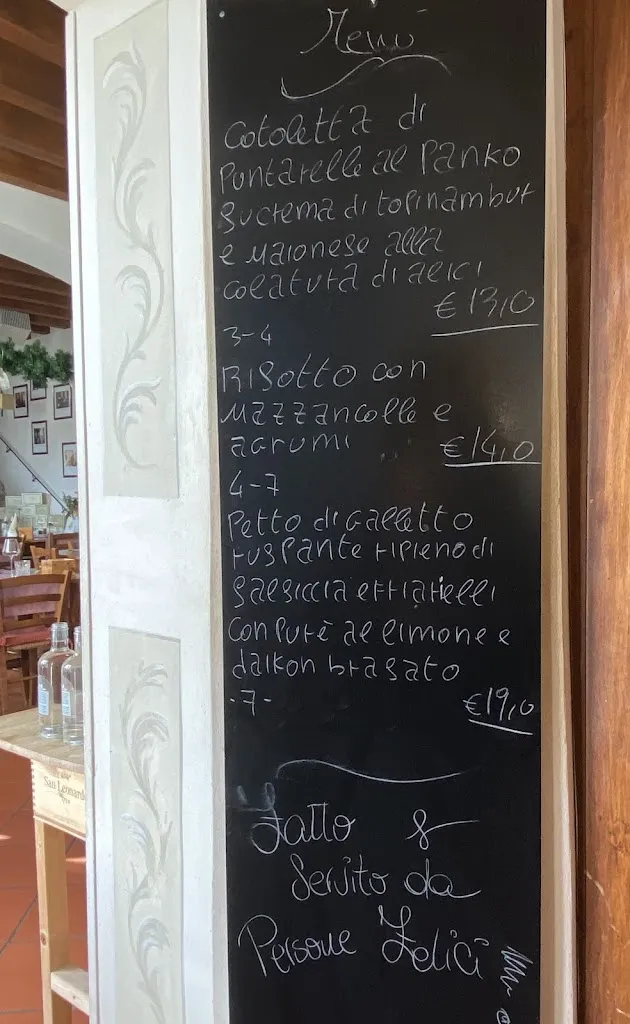 Menù
Cotoletta di
Puntarelle al Panko
su crema di topinambur
e maionese alla
colatura di alici
€ 13,0
3-4
Risotto con
mazzancolle e
agrumi
€ 14,0
4-7
Petto di Galletto
ruspante ripieno di
salsiccia e friarielli
con purè al limone e
daikon brasato
-7-
€ 19,0
Fatto &
Servito da
Persone Felici
San Leonardo